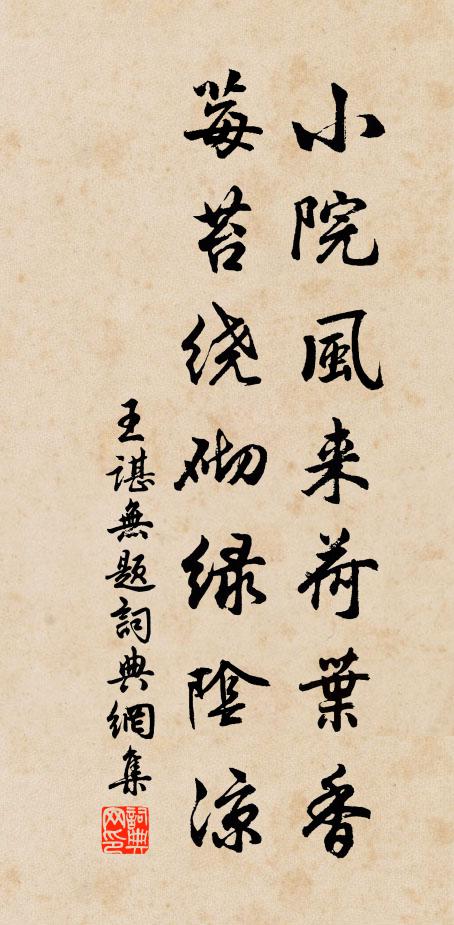 小院風来荷葉香
莓苔绕砌緑陰凉
王諶無題詞典網集
詞典网印